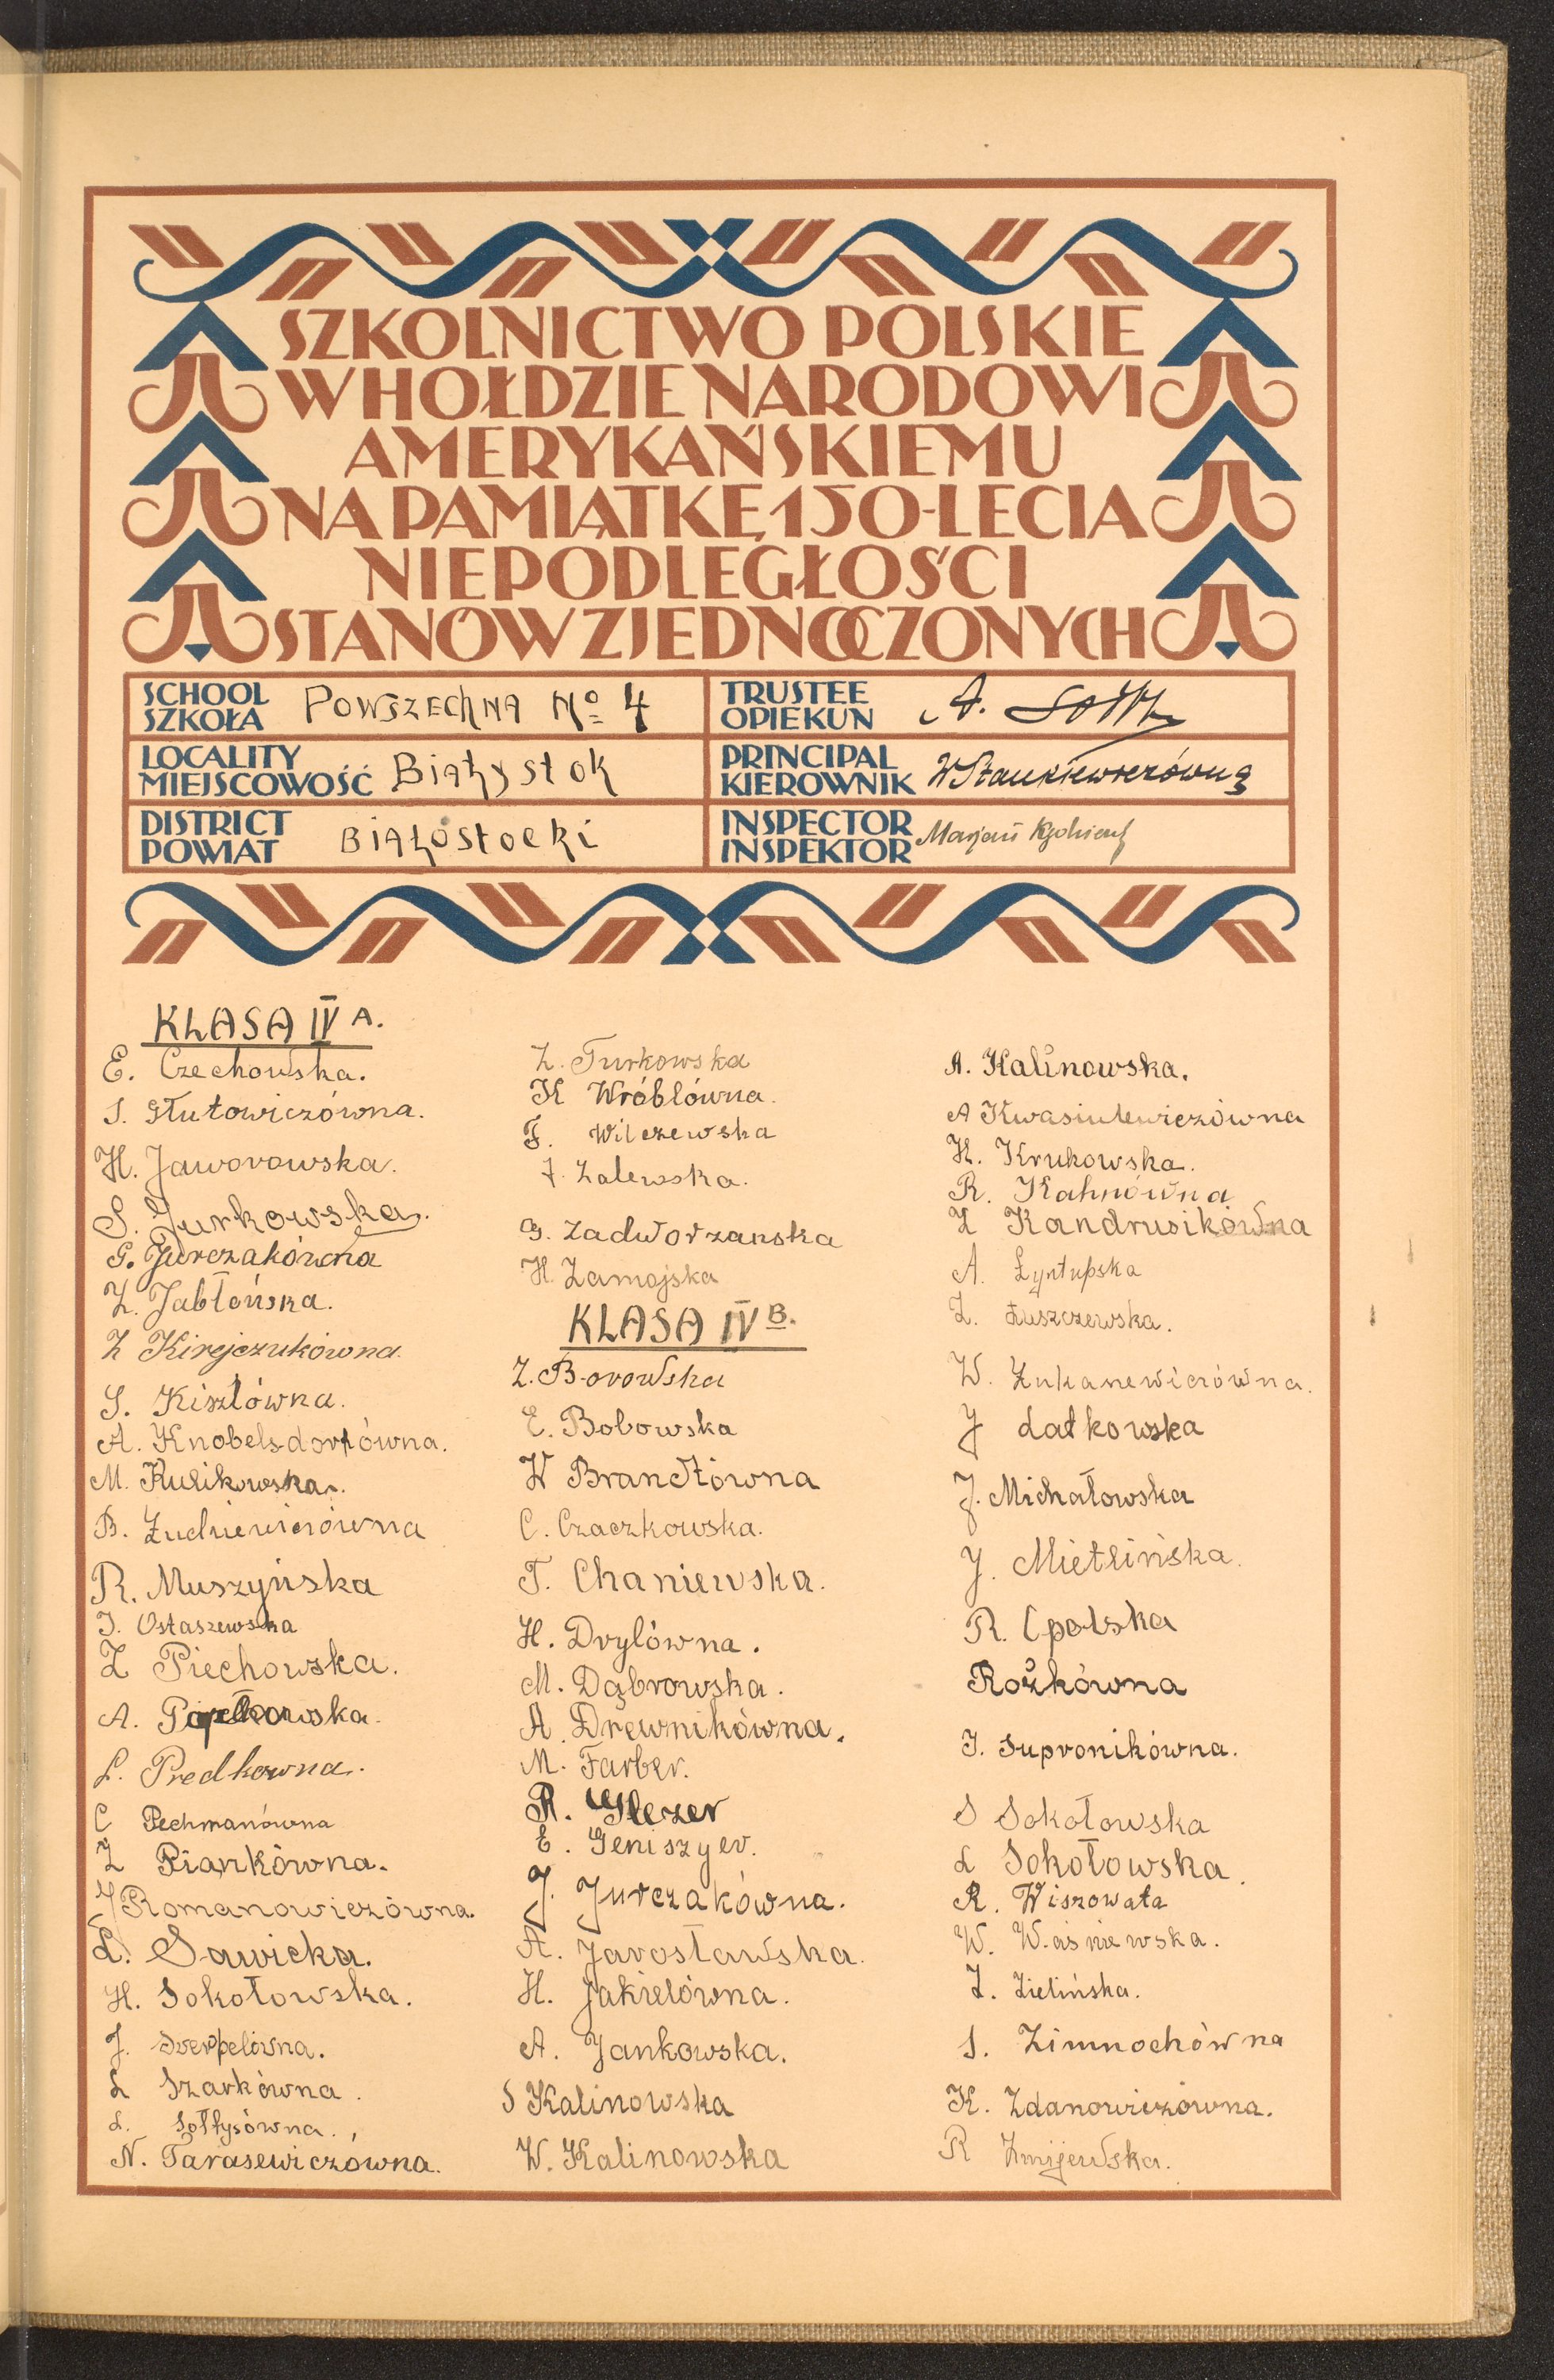 SZKOLNICTWO POLSKIE
W HOŁDZIE NARODOWI
AMERYKAŃSKIEMU
NA PAMIĄTKĘ 150-LECIA
NIEPODLEGŁOŚCI
STANÓW ZJEDNOCZONYCH
SCHOOL
SZKOŁA
POWSZECHNA No 4
TRUSTEE
OPIEKUN
A.
LOCALITY
MIEJSCOWOŚĆ
Białystok
PRINCIPAL
KIEROWNIK
W Stankiewiczówna
DISTRICT
POWIAT
Białostocki
INSPECTOR
INSPEKTOR
Marjan
KLASA IV A.
E. Czechowska.
S. Głutowiczówna.
H. Jaworowska.
S. Jurkowska.
G. Jurczakówna
Z. Jabłońska.
Z Kirejczukówna.
S. Kiszlówna.
A. Knobelsdorfówna.
M. Kulikowska.
B. Ludniewiczówna
R. Muszyńska
J. Ostaszewska
Z Piechowska.
A.
L. Predkowna.
C Pechmanówna
Z Piankówna.
J Romanowiczówna.
L. Sawicka.
H. Sokołowska.
J. Swerpelówna.
L Szarkówna.
L. Sołtysówna.
N. Tarasewiczówna.
Z. Turkowska
K Wróblówna.
F. Wilczewska
J. Zalewska.
G. Zadworzanska
H. Zamojska
KLASA IV B.
Z. Borowska
E. Bobowska
W Brandtówna
C. Czaczkowska.
T. Chaniewska.
H. Drylówna.
M. Dąbrowska.
A. Drewnikówna.
M. Farber.
R. Glezer
E. Geniszyer.
J. Jurczakówna.
A. Jarosławska.
H. Jakielówna.
A. Jankowska.
S Kalinowska
W. Kalinowska
A. Kalinowska.
A Kwasiulewiczówna
H. Krukowska.
R. Kahnówna
Z Kandrusikówna
A. Łyntupska
Z. Łuszczewska.
W. Łukanewiczówna.
J Łatkowska
J. Michałowska
J. Mietlińska.
R. Opolska
Rożkówna
J. Supronikówna.
S Sokołowska
L Sokołowska.
R. Wiszowata
W. Waśniewska.
Z. Zielińska.
S. Zimnochówna
K. Zdanowiczówna.
R Żmijewska.